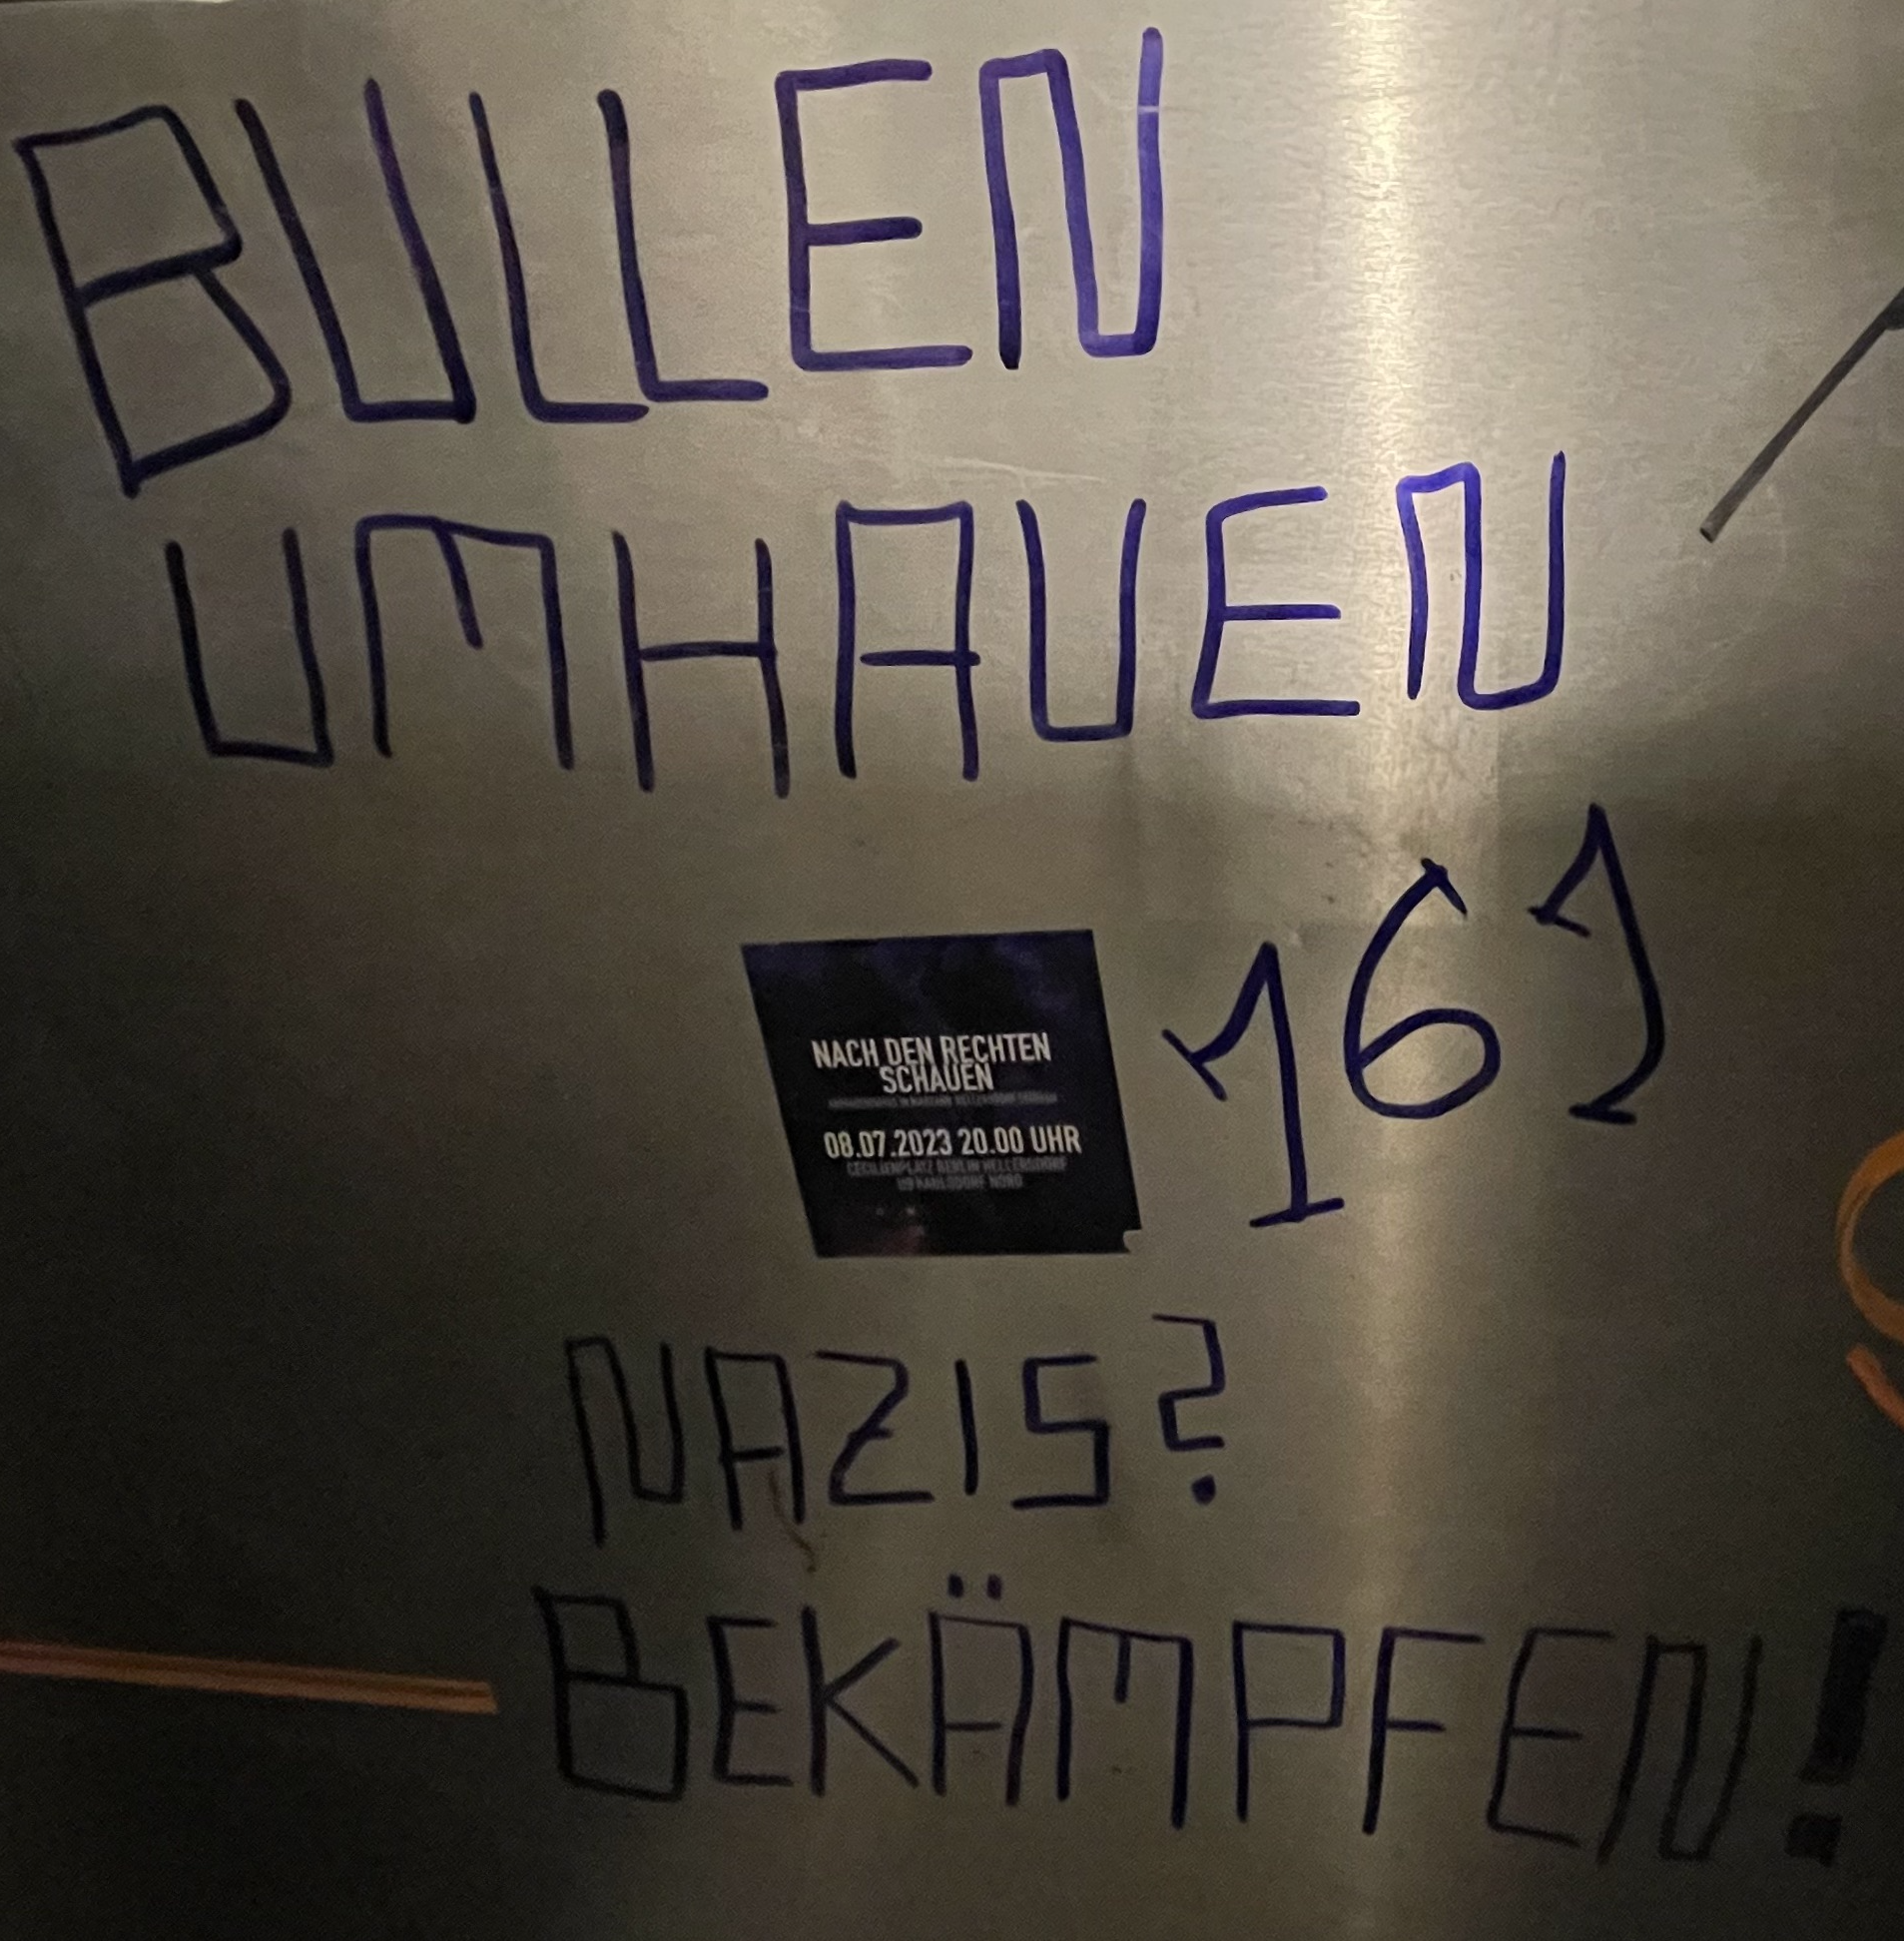 BULLEN
UMHAUEN
161
NACH DEN RECHTEN
SCHAUEN
08.07.2023 20.00 UHR
CECILIENPLATZ BERLIN HELLERSDORF
NORD
NAZIS?
BEKÄMPFEN!